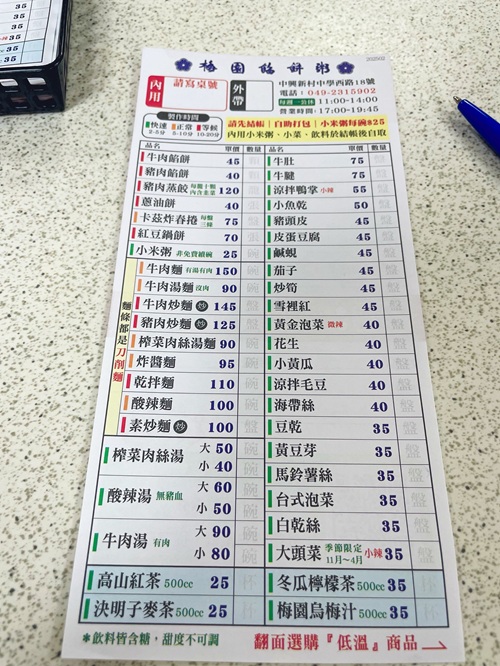 202502
梅園餡餅粥
內用
請寫桌號
外帶
中興新村中學西路18號
電話：049-2315902
每週一公休 11:00-14:00
營業時間：17:00-19:45
製作時間
快速 正常 等候
2-5分 5-10分 10-20分
請先結帳｜自助打包｜小米粥每碗$25
內用小米粥、小菜、飲料於結帳後自取
品名 單價 數量
牛肉餡餅 45
豬肉餡餅 40
豬肉蒸餃 每籠十顆 內含韭菜 120
蔥油餅 40
卡茲炸春捲 每盤三條 75
紅豆鍋餅 70
小米粥 非免費續碗 25
麵條都是刀削麵
牛肉麵 有湯有肉 150
牛肉湯麵 沒肉 90
牛肉炒麵 炒 145
豬肉炒麵 炒 125
榨菜肉絲湯麵 90
炸醬麵 95
乾拌麵 110
酸辣麵 100
素炒麵 炒 100
榨菜肉絲湯 大 50
小 40
酸辣湯 無豬血 大 60
小 50
牛肉湯 有肉 大 90
小 80
高山紅茶 500cc 25
決明子麥茶 500cc 25
品名 單價 數量
牛肚 75
牛腱 75
涼拌鴨掌 小辣 55
小魚乾 50
豬頭皮 45
皮蛋豆腐 45
鹹蜆 45
茄子 45
炒筍 45
雪裡紅 45
黃金泡菜 微辣 40
花生 40
小黃瓜 40
涼拌毛豆 40
海帶絲 40
豆乾 35
黃豆芽 35
馬鈴薯絲 35
台式泡菜 35
白乾絲 35
大頭菜 季節限定 11月~4月 小辣 35
冬瓜檸檬茶 500cc 35
梅園烏梅汁 500cc 35
*飲料皆含糖，甜度不可調
翻面選購『低溫』商品